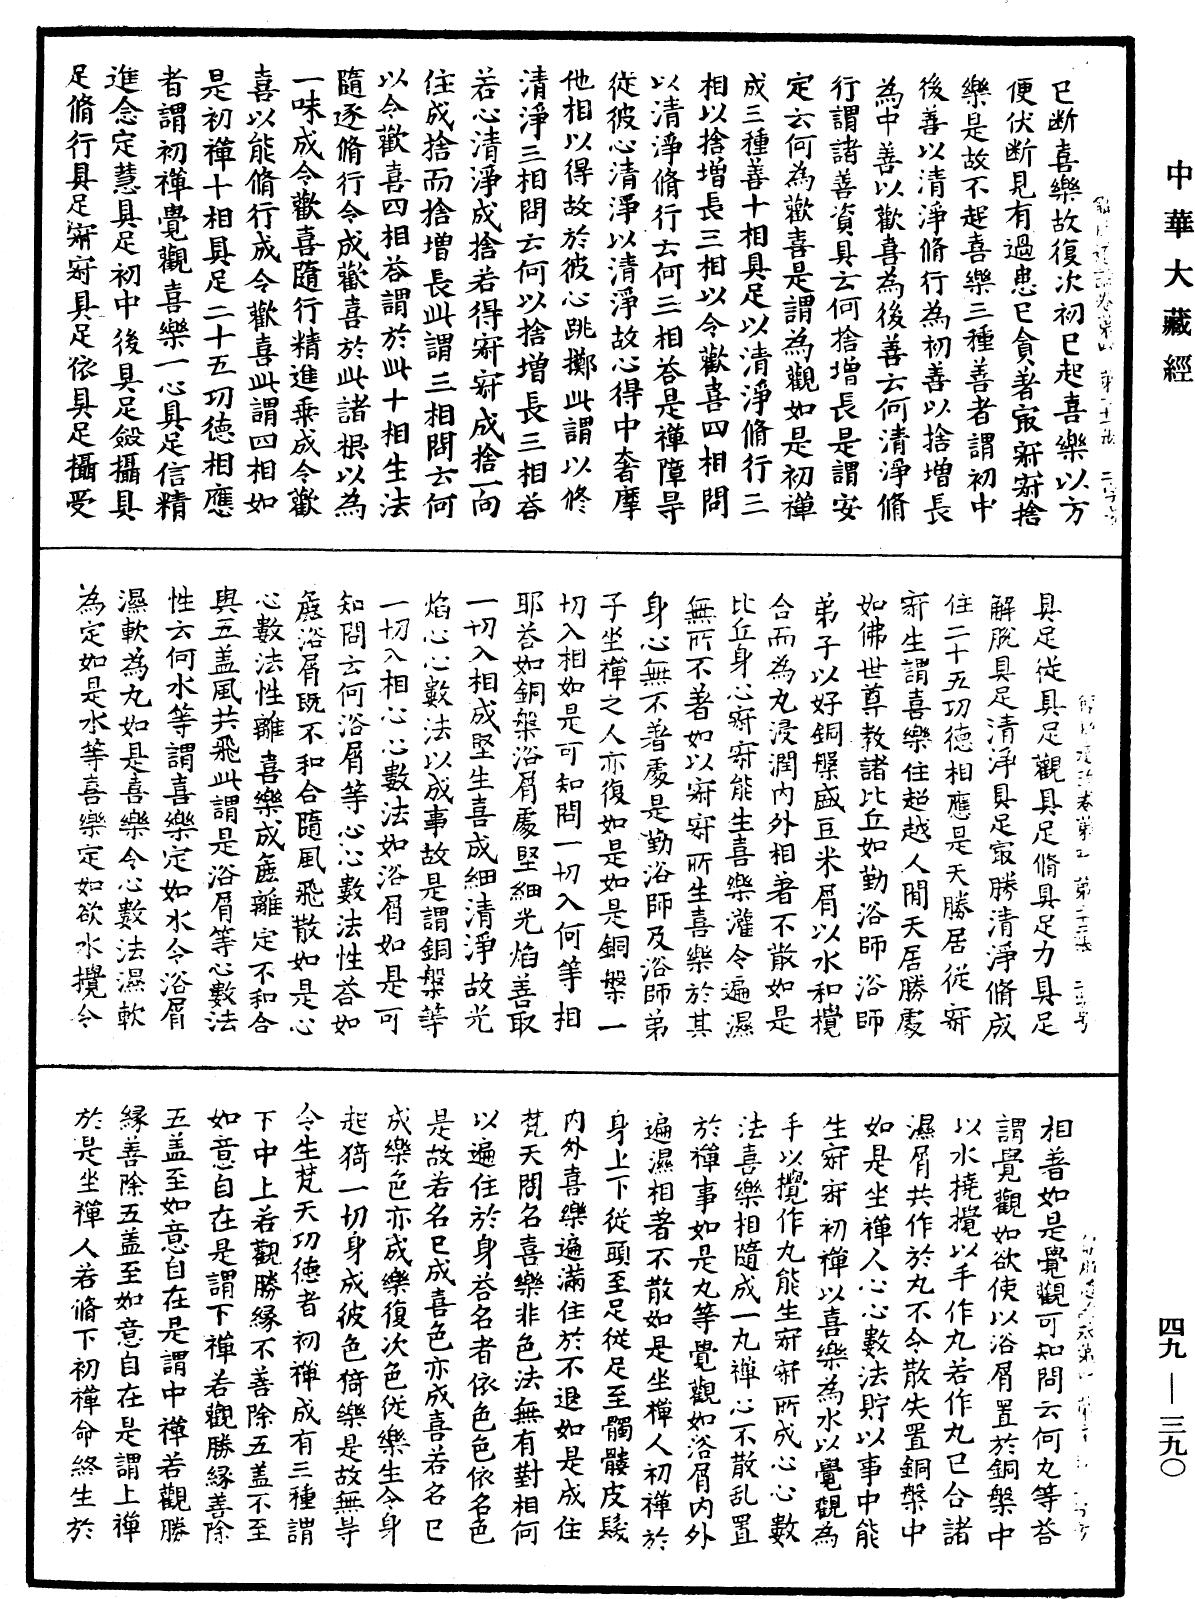 中華大藏經
已斷喜樂故復次初已起喜樂以方
便伏斷見有過患已貪著寂寂寂捨
樂是故不起喜樂三種善者謂初中
後善以清淨脩行為初善以捨增長
為中善以歡喜為後善云何清淨脩
行謂諸善資具云何捨增長是謂安
定云何為歡喜是謂為觀如是初禪
成三種善十相具足以清淨脩行三
相以捨增長三相以令歡喜四相問
以清淨脩行云何三相荅是禪障㝵
從彼心清淨以清淨故心得中奢摩
他相以得故於彼心跳擲此謂以修
清淨三相問云何以捨增長三相荅
若心清淨成捨若得寂寂成捨一向
住成捨而捨增長此謂三相問云何
以令歡喜四相荅謂於此十相生法
隨逐脩行令成歡喜於此諸根以為
一味成令歡喜隨行精進乗成令歡
喜以能脩行成令歡喜此謂四相如
是初禪十相具足二十五功德相應
者謂初禪覺觀喜樂一心具足信精
進念定慧具足初中後具足斂攝具
足脩行具足寂寂具足依具足攝受
具足從具足觀具足脩具足力具足
解脫具足清淨具足㝡勝清淨脩成
住二十五功德相應是天勝居從寂
寂生謂喜樂住超越人間天居勝處
如佛世尊教諸比丘如勤浴師浴師
弟子以好銅槃盛豆米屑以水和攪
合而為丸浸潤内外相著不散如是
比丘身心寂寂能生喜樂灌令遍濕
無所不著如以寂寂所生喜樂於其
身心無不著處是勤浴師及浴師弟
子坐禪之人亦復如是如是銅槃一
切入相如是可知問一切入何等相
耶荅如銅槃浴屑處堅細光焰善取
一切入相成堅生喜成細清淨故光
焰心心數法以成事故是謂銅槃等
一切入相心心數法如浴屑如是可
知問云何浴屑等心心數法性荅如
麁浴屑旣不和合隨風飛散如是心
心數法性離喜樂成麁離定不和合
與五盖風共飛此謂是浴屑等心數法
性云何水等謂喜樂定如水令浴屑
濕軟為丸如是喜樂令心數法濕軟
為定如是水等喜樂定如欲水攪令
相著如是覺觀可知問云何丸等荅
謂覺觀如欲使以浴屑置於銅槃中
以水撓攪以手作丸若作丸已合諸
濕屑共作於丸不令散失置銅槃中
如是坐禪人心心數法貯以事中能
生寂寂初禪以喜樂為水以覺觀為
手以攪作丸能生寂寂所成心心數
法喜樂相隨成一丸禪心不散乱置
於禪事如是丸等覺觀如浴屑内外
遍濕相著不散如是坐禪人初禪於
身上下從頭至足從足至髑髏皮髮
内外喜樂遍滿住於不退如是成住
梵天問名喜樂非色法無有對相何
以遍住於身荅名者依色色依名色
是故若名已成喜色亦成喜若名已
成樂色亦成樂復次色從樂生令身
起猗一切身成彼色猗樂是故無㝵
令生梵天功德者初禪成有三種謂
下中上若觀勝緣不善除五盖不至
如意自在是謂下禪若觀勝緣善除
五盖至如意自在是謂中禪若觀勝
緣善除五盖至如意自在是謂上禪
於是坐禪人若脩下初禪命終生於
四九—三九〇